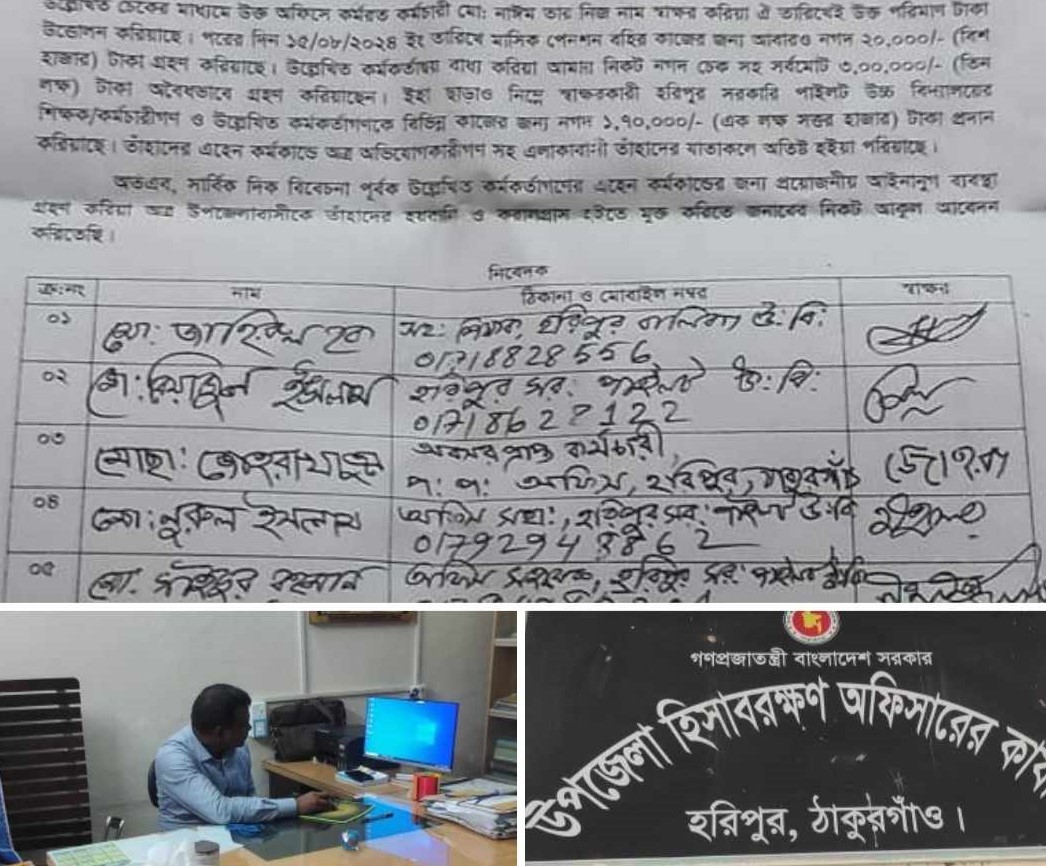 উল্লেখিত চেকের মাধ্যমে উক্ত অফিসে কর্মরত কর্মচারী মো: নাঈম তার নিজ নাম স্বাক্ষর করিয়া ঐ তারিখেই উক্ত পরিমাণ টাকা
উত্তোলন করিয়াছে। পরের দিন ১৫/০৮/২০২৪ ইং তারিখে মাসিক পেনশন বহির কাজের জন্য আবারও নগদ ২০,০০০/- (বিশ
হাজার) টাকা গ্রহন করিয়াছে। উল্লেখিত কর্মকর্তাদ্বয় বাধ্য করিয়া আমার নিকট নগদ চেক সহ সর্বমোট ৩,০০,০০০/- (তিন
লক্ষ) টাকা অবৈধভাবে গ্রহণ করিয়াছেন। ইহা ছাড়াও নিম্নে স্বাক্ষরকারী হরিপুর সরকারি পাইলট উচ্চ বিদ্যালয়ের
শিক্ষক/কর্মচারীগণ ও উল্লেখিত কর্মকর্তাগণকে বিভিন্ন কাজের জন্য নগদ ১,৭০,০০০/- (এক লক্ষ সত্তর হাজার) টাকা প্রদান
করিয়াছে। তাঁহাদের এহেন কর্মকান্ডে অত্র অভিযোগকারীগণ সহ এলাকাবাসী তাঁহাদের যাতাকলে অতিষ্ট হইয়া পরিয়াছে।
অতএব, সার্বিক দিক বিবেচনা পূর্বক উল্লেখিত কর্মকর্তাগণের এহেন কর্মকান্ডের জন্য প্রয়োজনীয় আইনানুগ ব্যবস্থা
গ্রহণ করিয়া অত্র উপজেলাবাসীকে তাঁহাদের হয়রানি ও করালগ্রাস হইতে মুক্ত করিতে জনাবের নিকট আকুল আবেদন
করিতেছি।
নিবেদক
ক্র:নং নাম ঠিকানা ও মোবাইল নম্বর স্বাক্ষর
০১ মো: তাহিরুল হক সহ: শিক্ষক, হরিপুর বালিকা উ: বি:
01718828556
০২ মো: রিয়াজুল ইসলাম হরিপুর সর: পাইলট উ: বি:
01718622122
০৩ মোছা: জোহরা খাতুন অবসর প্রাপ্ত কর্মচারী, জোহরা
প: প: অফিস, হরিপুর, ঠাকুরগাঁও
০৪ মো: নুরুল ইসলাম অফিস সহা:, হরিপুর সর: পাইলট উ:বি
01792948862
০৫ মো. সাইদুর রহমান অফিস সহায়ক, হরিপুর সর: পাইলট উ:বি
গণপ্রজাতন্ত্রী বাংলাদেশ সরকার
উপজেলা হিসাবরক্ষণ অফিসারের কার্যা
হরিপুর, ঠাকুরগাঁও।